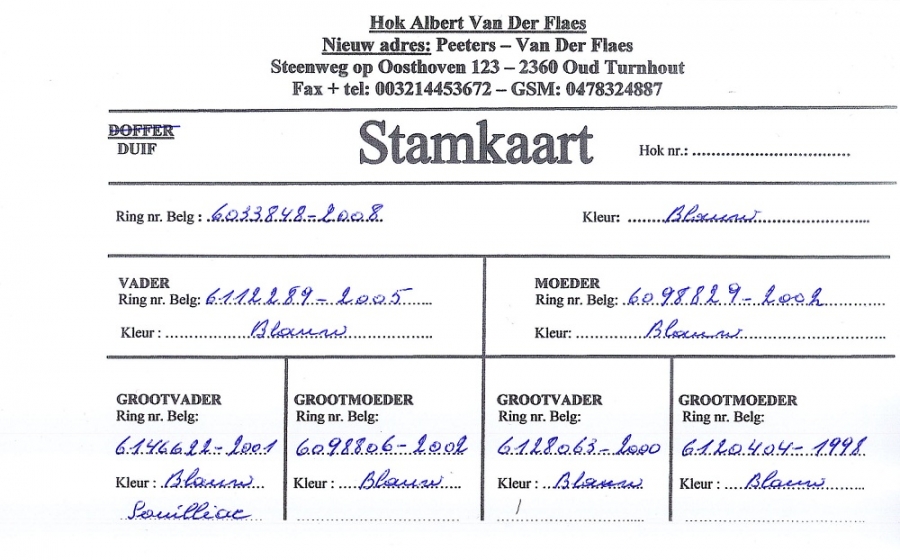 Hok Albert Van Der Flaes
Nieuw adres: Peeters – Van Der Flaes
Steenweg op Oosthoven 123 – 2360 Oud Turnhout
Fax + tel: 003214453672 – GSM: 0478324887
DOFFER
DUIF
Stamkaart
Hok nr.:
Ring nr. Belg : 6033848-2008
Kleur: Blauw
VADER
Ring nr. Belg: 6112289-2005
Kleur : Blauw
MOEDER
Ring nr. Belg: 6098829-2002
Kleur: Blauw
GROOTVADER
Ring nr. Belg:
6146622-2001
Kleur : Blauw
Souilliac
GROOTMOEDER
Ring nr. Belg:
6098806-2002
Kleur : Blauw
GROOTVADER
Ring nr. Belg:
6128063-2000
Kleur : Blauw
GROOTMOEDER
Ring nr. Belg:
6120404-1998
Kleur : Blauw